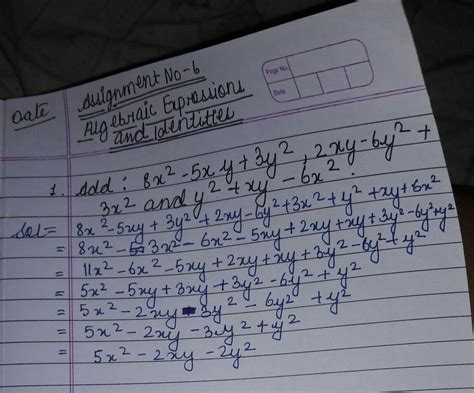 Date
Assignment No-6
Algebraic Expressions
and identities
Page No.
Date
1. Add : 8x² - 5xy + 3y², 2xy - 6y² +
3x² and y² + xy - 6x².
Sol = 8x² - 5xy + 3y² + 2xy - 6y² + 3x² + y² + xy + 6x²
= 8x² - 3x² - 6x² - 5xy + 2xy + xy + 3y² - 6y² + y²
= 11x² - 6x² - 5xy + 2xy + xy + 3y² - 6y² + y²
= 5x² - 5xy + 3xy + 3y² - 6y² + y²
= 5x² - 2xy - 3y² - 6y² + y²
= 5x² - 2xy - 3y² + y²
= 5x² - 2xy - 2y²